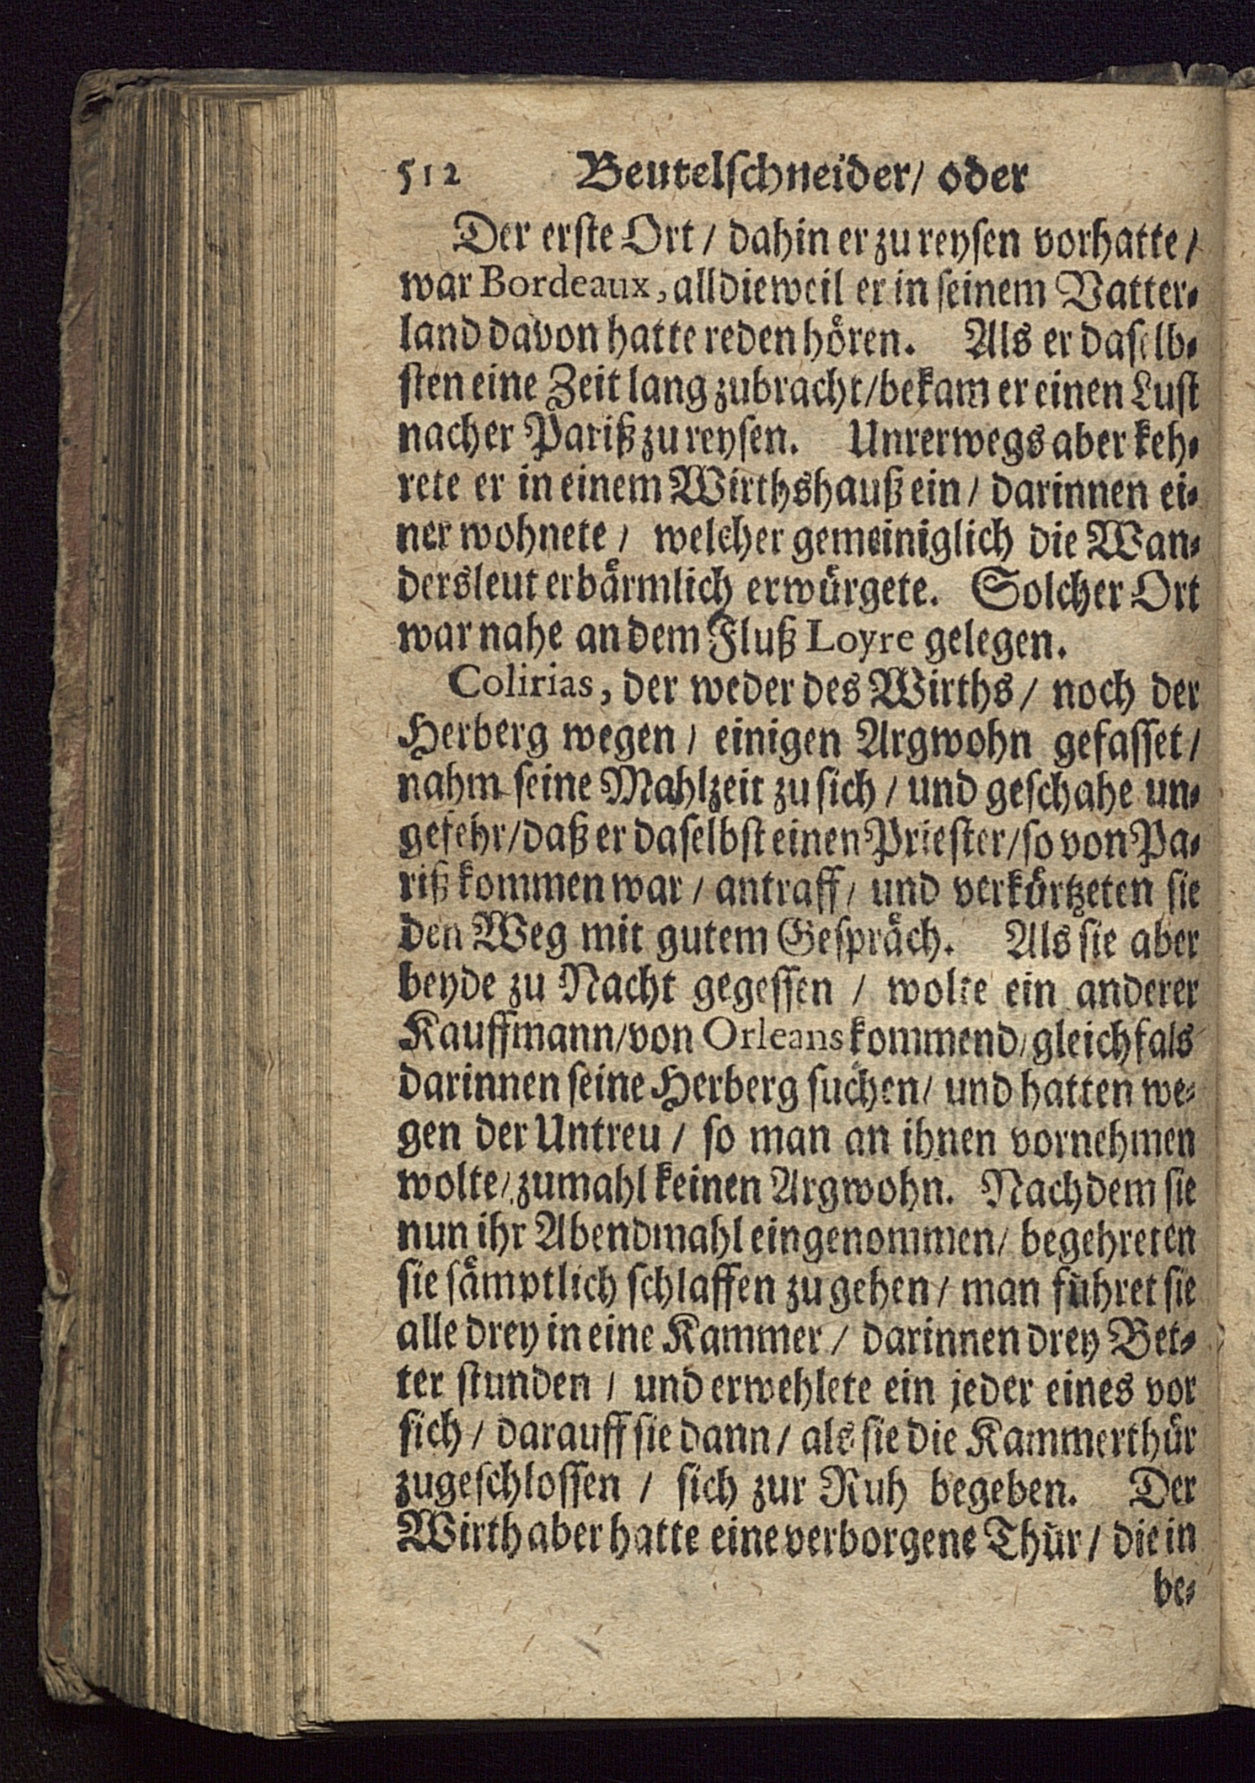 512 Beutelschneider/ oder
Der erste Ort / dahin er zu reysen vorhatte /
war Bordeaux, alldieweil er in seinem Vatter-
land davon hatte reden hören. Als er daselb-
sten eine Zeit lang zubracht/bekam er einen Lust
nacher Pariß zu reysen. Unrerwegs aber keh-
rete er in einem Wirthshauß ein / darinnen ei-
ner wohnete / welcher gemeiniglich die Wan-
dersleut erbärmlich erwürgete. Solcher Ort
war nahe an dem Fluß Loyre gelegen.
Colirias, der weder des Wirths / noch der
Herberg wegen / einigen Argwohn gefasset /
nahm seine Mahlzeit zu sich / und geschahe un-
gefehr/daß er daselbst einen Priester/so von Pa-
riß kommen war / antraff / und verkürtzeten sie
den Weg mit gutem Gespräch. Als sie aber
beyde zu Nacht gegessen / wolte ein anderer
Kauffmann/von Orleans kommend/gleichfals
darinnen seine Herberg suchen/ und hatten we-
gen der Untreu / so man an ihnen vornehmen
wolte/zumahl keinen Argwohn. Nachdem sie
nun ihr Abendmahl eingenommen/ begehreten
sie sämptlich schlaffen zu gehen / man führet sie
alle drey in eine Kammer / darinnen drey Bet-
ter stunden / und erwehlete ein jeder eines vor
sich / darauff sie dann / als sie die Kammerthür
zugeschlossen / sich zur Ruh begeben. Der
Wirth aber hatte eine verborgene Thür / die in
be-